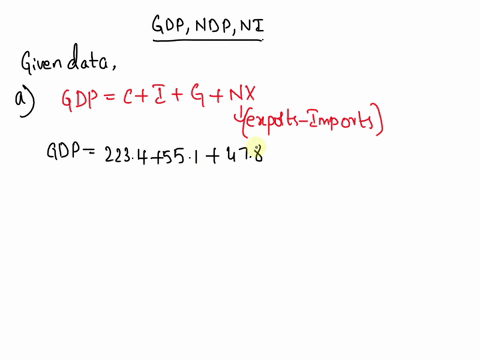 GDP, NDP, NI
Given data,
a) GDP = C + I + G + NX
↓(exports - Imports)
GDP = 223.4 + 55.1 + 47.8